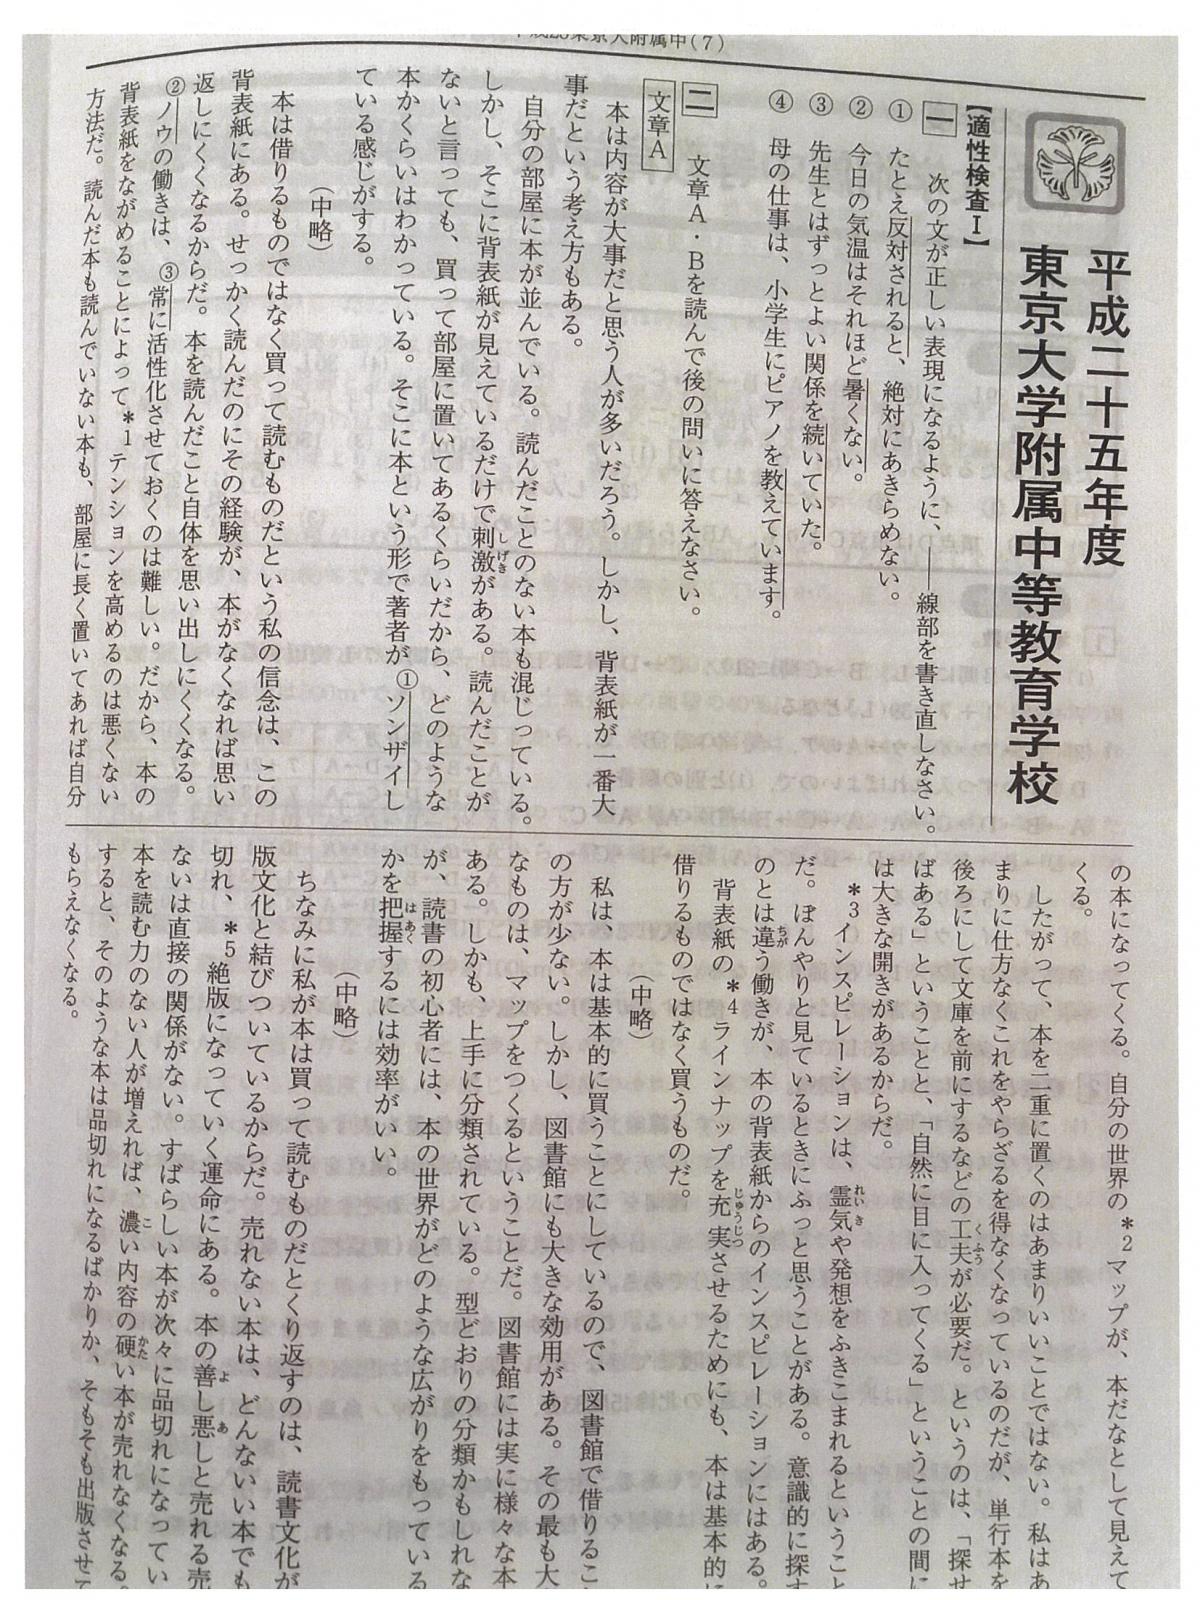 附属中(7)
平成二十五年度
東京大学附属中等教育学校
【適性検査Ⅰ】
一 次の文が正しい表現になるように、――線部を書き直しなさい。
① たとえ反対されると、絶対にあきらめない。
② 今日の気温はそれほど暑くない。
③ 先生とはずっとよい関係を続いていた。
④ 母の仕事は、小学生にピアノを教えています。
二 文章A・Bを読んで後の問いに答えなさい。
文章A
本は内容が大事だと思う人が多いだろう。しかし、背表紙が一番大
事だという考え方もある。
自分の部屋に本が並んでいる。読んだことのない本も混じっている。
しかし、そこに背表紙が見えているだけで刺激がある。読んだことが
ないと言っても、買って部屋に置いてあるくらいだから、どのような
本かくらいはわかっている。そこに本という形で著者が①ソンザイし
ている感じがする。
(中略)
本は借りるものではなく買って読むものだという私の信念は、この
背表紙にある。せっかく読んだのにその経験が、本がなくなれば思い
返しにくくなるからだ。本を読んだこと自体を思い出しにくくなる。
②ノウの働きは、③常に活性化させておくのは難しい。だから、本の
背表紙をながめることによって*1テンションを高めるのは悪くない
方法だ。読んだ本も読んでいない本も、部屋に長く置いてあれば自分
の本になってくる。自分の世界の*2マップが、本だなとして見えて
くる。
したがって、本を二重に置くのはあまりいいことではない。私はあ
まりに仕方なくこれをやらざるを得なくなっているのだが、単行本を
後ろにして文庫を前にするなどの工夫が必要だ。というのは、「探せ
ばある」ということと、「自然に目に入ってくる」ということの間に
は大きな開きがあるからだ。
*3インスピレーションは、霊気や発想をふきこまれるということ
だ。ぼんやりと見ているときにふっと思うことがある。意識的に探す
のとは違う働きが、本の背表紙からのインスピレーションにはある。
背表紙の*4ラインナップを充実させるためにも、本は基本的に
借りるものではなく買うものだ。
(中略)
私は、本は基本的に買うことにしているので、図書館で借りるこ
の方が少ない。しかし、図書館にも大きな効用がある。その最も大
なものは、マップをつくるということだ。図書館には実に様々な本
ある。しかも、上手に分類されている。型どおりの分類かもしれな
が、読書の初心者には、本の世界がどのような広がりをもっている
かを把握するには効率がいい。
(中略)
ちなみに私が本は買って読むものだとくり返すのは、読書文化が
版文化と結びついているからだ。売れない本は、どんないい本でも
切れ、*5絶版になっていく運命にある。本の善し悪しと売れる売
ないは直接の関係がない。すばらしい本が次々に品切れになってい
本を読む力のない人が増えれば、濃い内容の硬い本が売れなくなる。
すると、そのような本は品切れになるばかりか、そもそも出版させて
もらえなくなる。